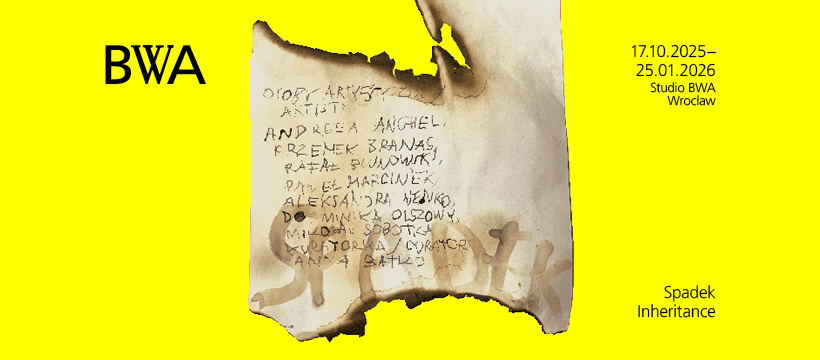 BWA
OSOBY ARTYSTYCZNE/
ARTISTS
ANDREEA ANGHEL,
KRZEMEK BRANAS,
RAFAŁ BUJNOWSKI,
PAWEŁ MARCINEK,
ALEKSANDRA NENKO,
DOMINIKA OLSZOWY,
MIKOŁAJ SOBOTKA
KURATORKA/CURATOR
ANNA BATKO
SPADEK
17.10.2025–
25.01.2026
Studio BWA
Wrocław
Spadek
Inheritance